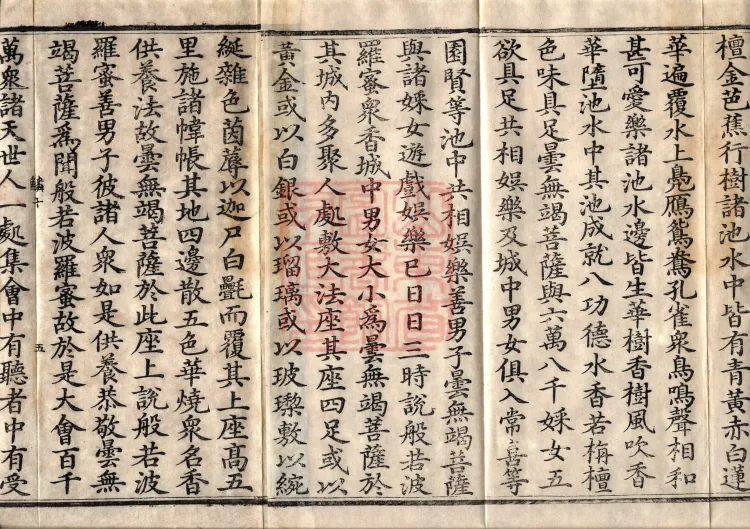 檀金芭蕉行樹諸池水中皆有青黃赤白蓮
華遍覆水上鳧鴈鴛鴦孔雀衆鳥鳴聲相和
甚可愛樂諸池水邊皆生華樹香樹風吹香
華墮池水中其池成就八功德水香若栴檀
色味具足曇無竭菩薩與六萬八千婇女五
欲具足共相娛樂及城中男女俱入常喜等
園賢等池中共相娛樂善男子曇無竭菩薩
與諸婇女遊戲娛樂已日日三時說般若波
羅蜜衆香城中男女大小爲曇無竭菩薩於
其城內多聚人處敷大法座其座四足或以
黃金或以白銀或以瑠璃或以玻瓈敷以綩
綖雜色茵蓐以迦尸白㲲而覆其上座高五
里施諸幃帳其地四邊散五色華燒衆名香
供養法故曇無竭菩薩於此座上說般若波
羅蜜善男子彼諸人衆如是供養恭敬曇無
竭菩薩爲聞般若波羅蜜故於是大會百千
萬衆諸天世人一處集會中有聽者中有受
鱗十
五